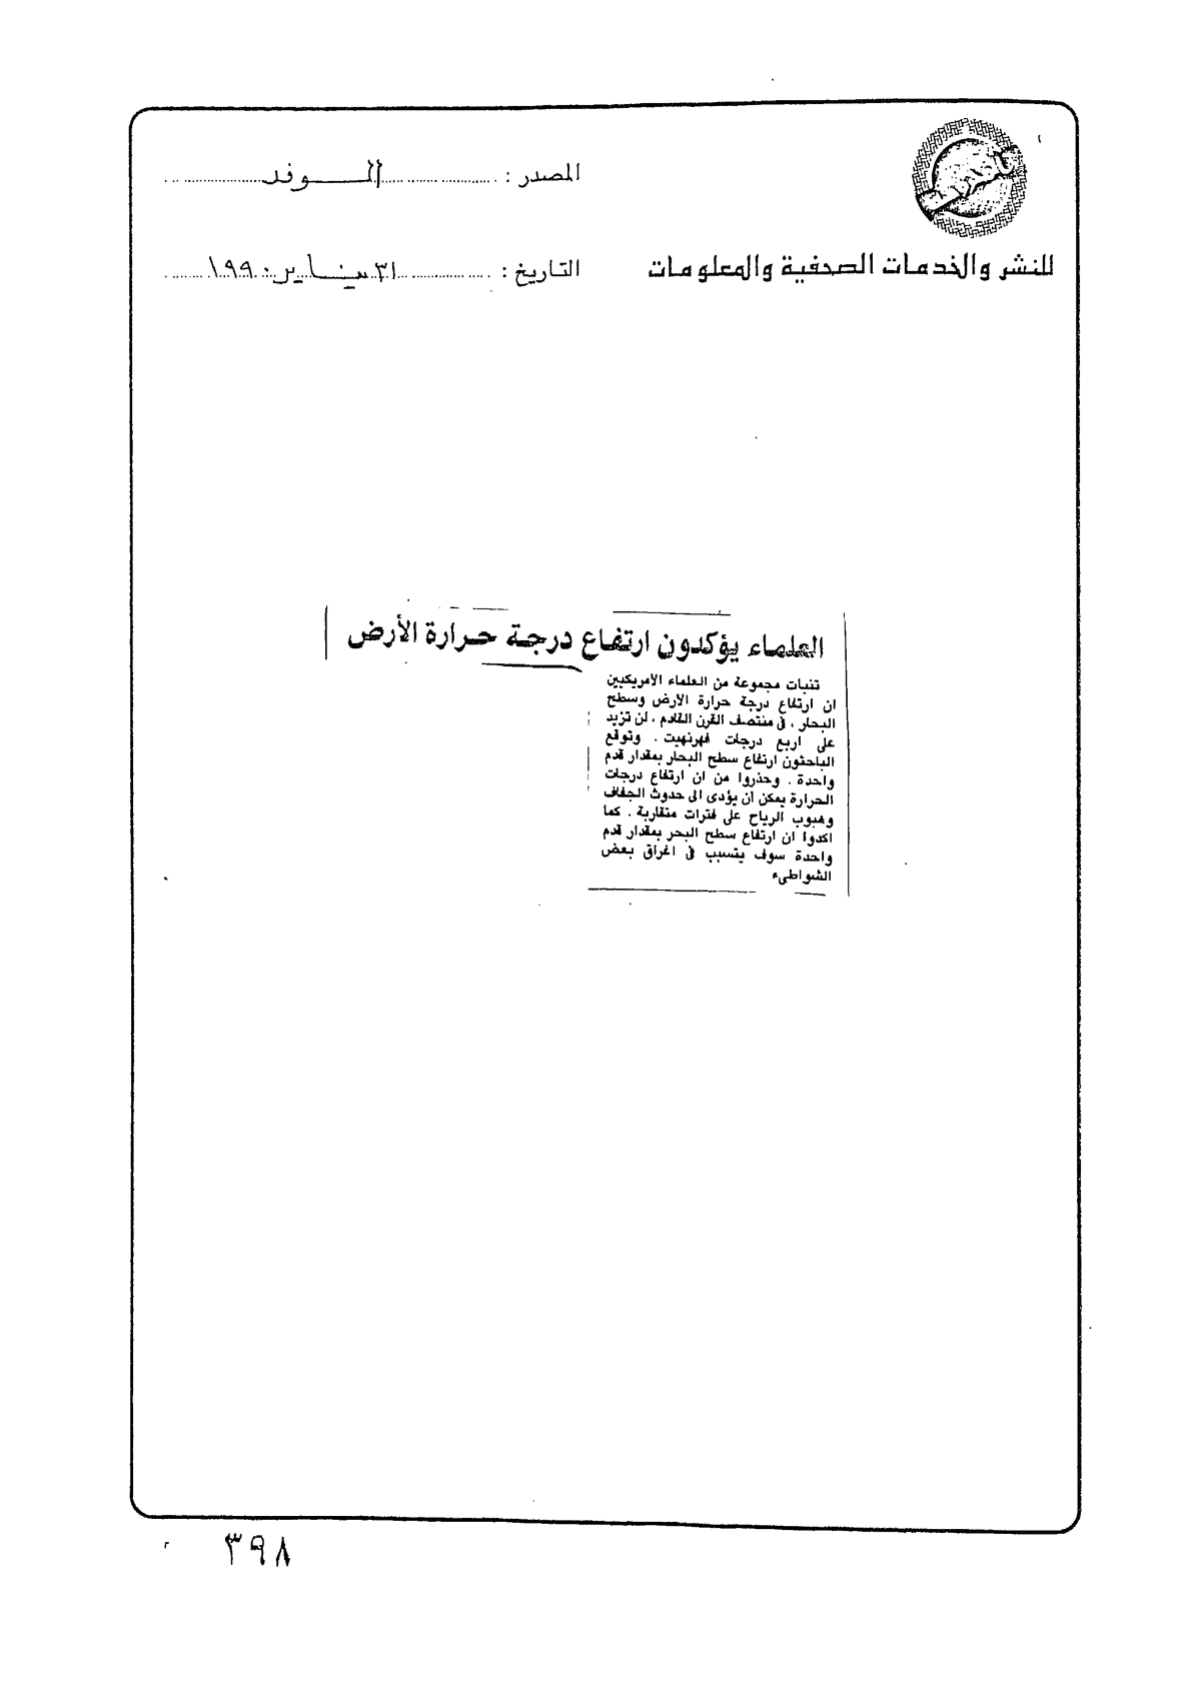 المصدر : الوفد
للنشر والخدمات الصحفية والمعلومات
التاريخ : ٣١ يناير ١٩٩٠
العلماء يؤكدون ارتفاع درجة حرارة الأرض
تنبات مجموعة من العلماء الأمريكيين
ان ارتفاع درجة حرارة الأرض وسطح
البحار ، فى منتصف القرن القادم ، لن تزيد
على اربع درجات فهرنهيت . وتوقع
الباحثون ارتفاع سطح البحار بمقدار قدم
واحدة . وحذروا من ان ارتفاع درجات
الحرارة يمكن أن يؤدى الى حدوث الجفاف
وهبوب الرياح على فترات متقاربة . كما
اكدوا ان ارتفاع سطح البحر بمقدار قدم
واحدة سوف يتسبب فى اغراق بعض
الشواطىء
٣٩٨